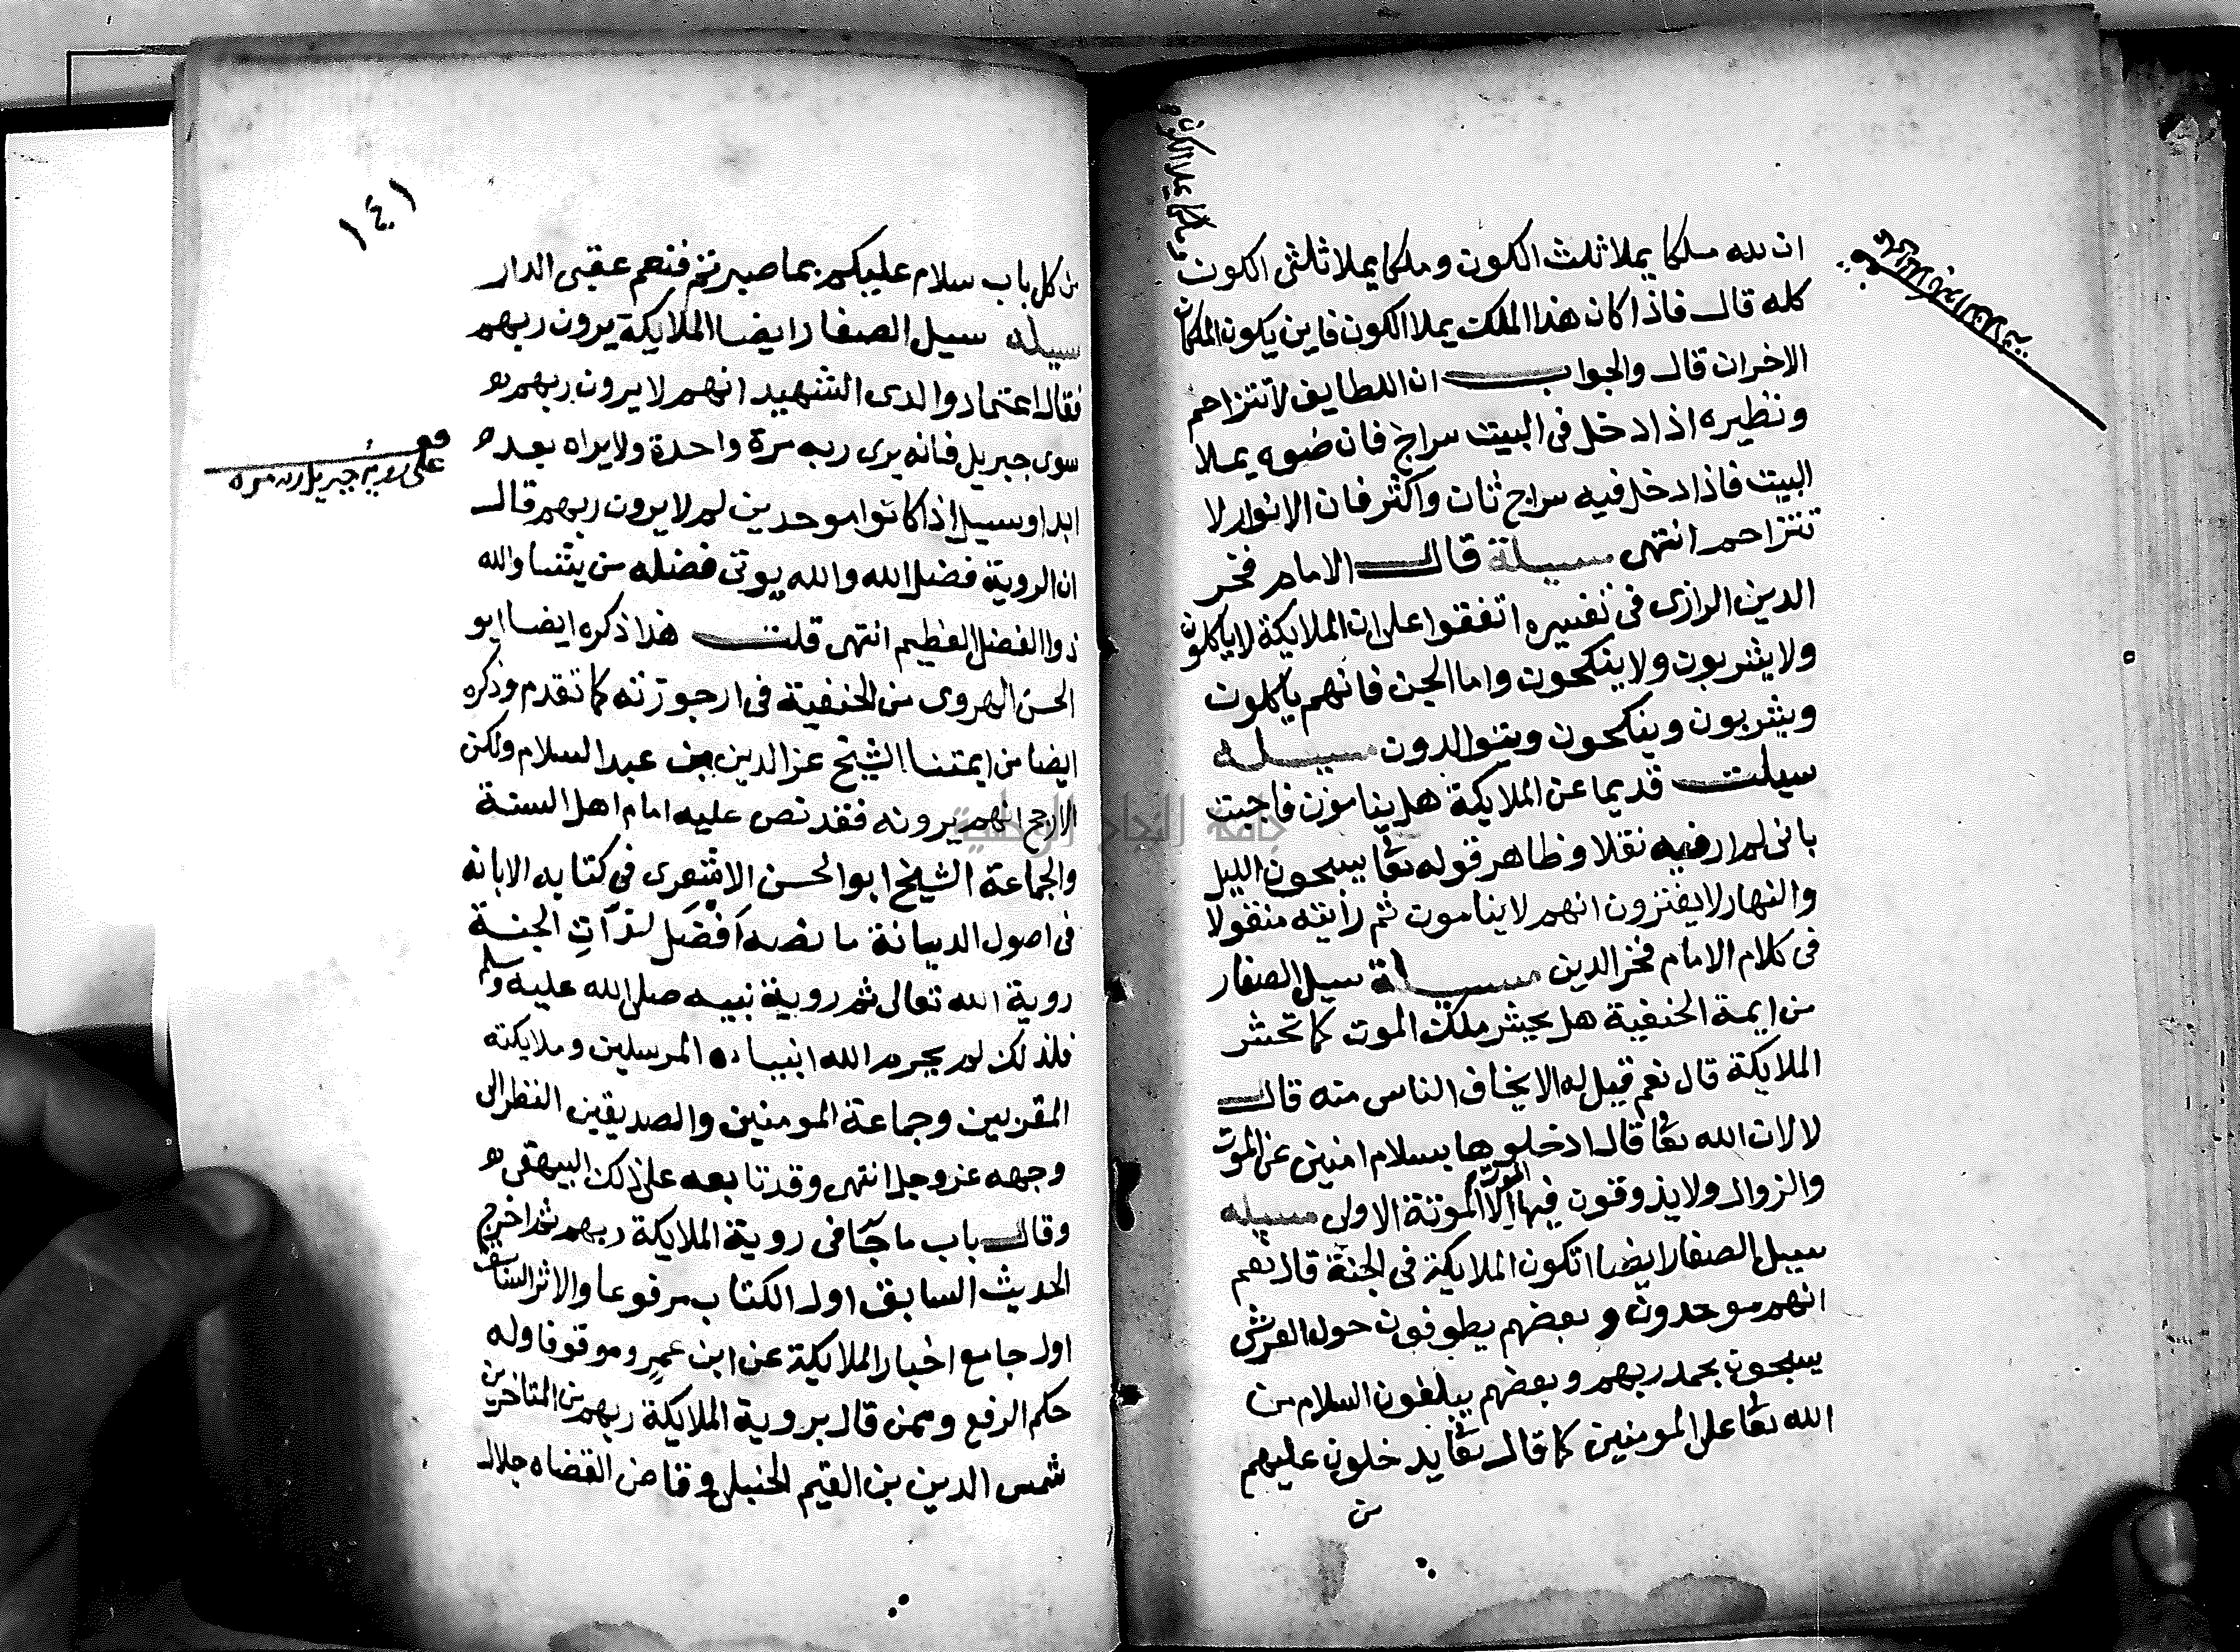 ان لله ملكا يملا ثلث الكون وملكا يملا ثلثى الكون
وملكا يملا الكون
كله قال فاذا كان هذا الملك يملا الكون فاين يكون الملكان
الاخران قال والجواب ان اللطايف لا تتزاحم
ونظيره اذا دخل فى البيت سراج فان ضوه يملا
البيت فاذا دخل فيه سراج ثان واكثر فان الانوار لا
تتزاحم انتهى مسيلة قال الامام فخر
الدين الرازى فى تفسيره اتفقوا على ان الملايكة لا ياكلون
ولا يشربون ولا ينكحون واما الجن فانهم ياكلون
ويشربون وينكحون ويتوالدون مسيله
سيلت قديما عن الملايكة هل ينامون فاجبت
بانى لم ار فيه نقلا وظاهر قوله تعا يسبحون الليل
والنهار لا يفترون انهم لا ينامون ثم رايته منقولا
فى كلام الامام فخر الدين مسيلة سيل الصفار
من ايمة الحنفية هل يحشر ملك الموت كما تحشر
الملايكة قال نعم قيل له الا يخاف الناس منه قال
لا لان الله تعا قال ادخلوها بسلام امنين عن الموت
والزوال ولا يذوقون فيها الا الموتة الاولى مسيله
سيل الصفار ايضا اتكون الملايكة فى الجنة قال نعم
انهم موحدون وبعضهم يطوفون حول العرش
يسبحون بحمد ربهم وبعضهم يبلغون السلام من
الله تعا على المومنين كما قال تعا يدخلون عليهم
من
١٤١
من كل باب سلام عليكم بما صبرتم فنعم عقبى الدار
مسيله سيل الصفار ايضا الملايكة يرون ربهم
فقال اعتماد والدى الشهيد انهم لا يرون ربهم
سوى جبريل فانه يرى ربه مرة واحدة ولا يراه بعد
على روية جبريل ربه مره
ابدا وسيل اذا كانوا موحدين لم لا يرون ربهم قال
ان الروية فضل الله والله يوتى فضله من يشا والله
ذوا الفضل العظيم انتهى قلت هذا ذكره ايضا ابو
الحسن الهروى من الحنفية فى ارجوزته كما تقدم وذكره
ايضا من ايمتنا الشيخ عز الدين بن عبد السلام ولكن
الارجح انهم يرونه فقد نص عليه امام اهل السنة
والجماعة الشيخ ابو الحسن الاشعرى فى كتابه الابانه
فى اصول الديانة ما نصه افضل لذات الجنة
روية الله تعالى ثم روية نبيه صلى الله عليه وسلم
فلذلك لم يحرم الله انبياه المرسلين وملايكته
المقربين وجماعة المومنين والصديقين النظر الى
وجهه عز وجل انتهى وقد تابعه على ذلك البيهقى
وقال باب ما جا فى روية الملايكة ربهم ثم اخرج
الحديث السابق اول الكتاب مرفوعا والاثر السابق
اول جامع اخبار الملايكة عن ابن عمرو موقوفا وله
حكم الرفع وممن قال بروية الملايكة ربهم من المتاخرين
شمس الدين بن القيم الحنبلى وقاضى القضاه جلال
جامعة النجاح الوطنية